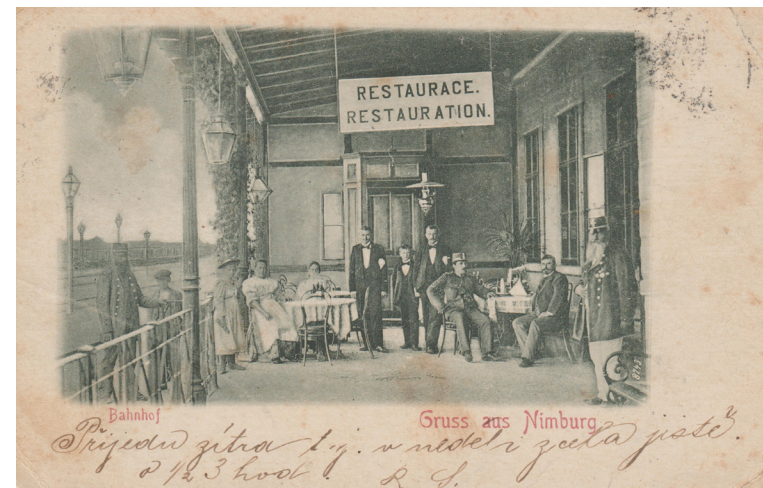 RESTAURACE.
RESTAURATION.
Bahnhof
Gruss aus Nimburg
Přijedu zítra t.j. v neděli zcela jistě.
o ½ 3 hod.